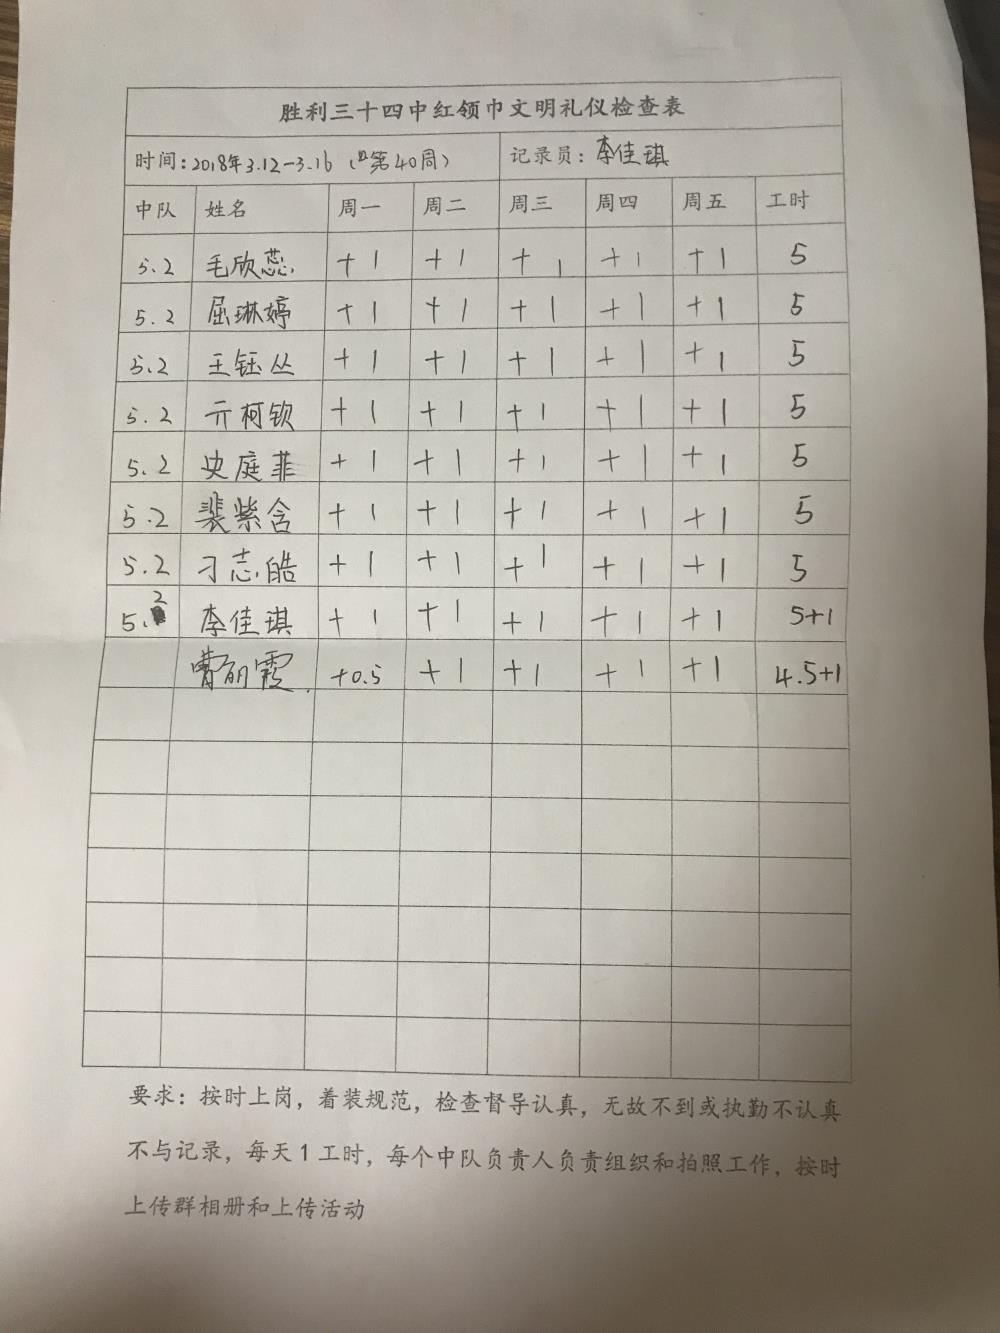 胜利三十四中红领巾文明礼仪检查表
时间:2018年3.12-3.16 (第40周) 记录员: 李佳琪
中队 姓名 周一 周二 周三 周四 周五 工时
5.2 毛欣蕊 +1 +1 +1 +1 +1 5
5.2 屈琳婷 +1 +1 +1 +1 +1 5
5.2 王钰丛 +1 +1 +1 +1 +1 5
5.2 亓柯钦 +1 +1 +1 +1 +1 5
5.2 史庭菲 +1 +1 +1 +1 +1 5
5.2 裴紫含 +1 +1 +1 +1 +1 5
5.2 刁志皓 +1 +1 +1 +1 +1 5
5.2 李佳琪 +1 +1 +1 +1 +1 5+1
曹丽霞 +0.5 +1 +1 +1 +1 4.5+1
要求：按时上岗，着装规范，检查督导认真，无故不到或执勤不认真
不与记录，每天1工时，每个中队负责人负责组织和拍照工作，按时
上传群相册和上传活动